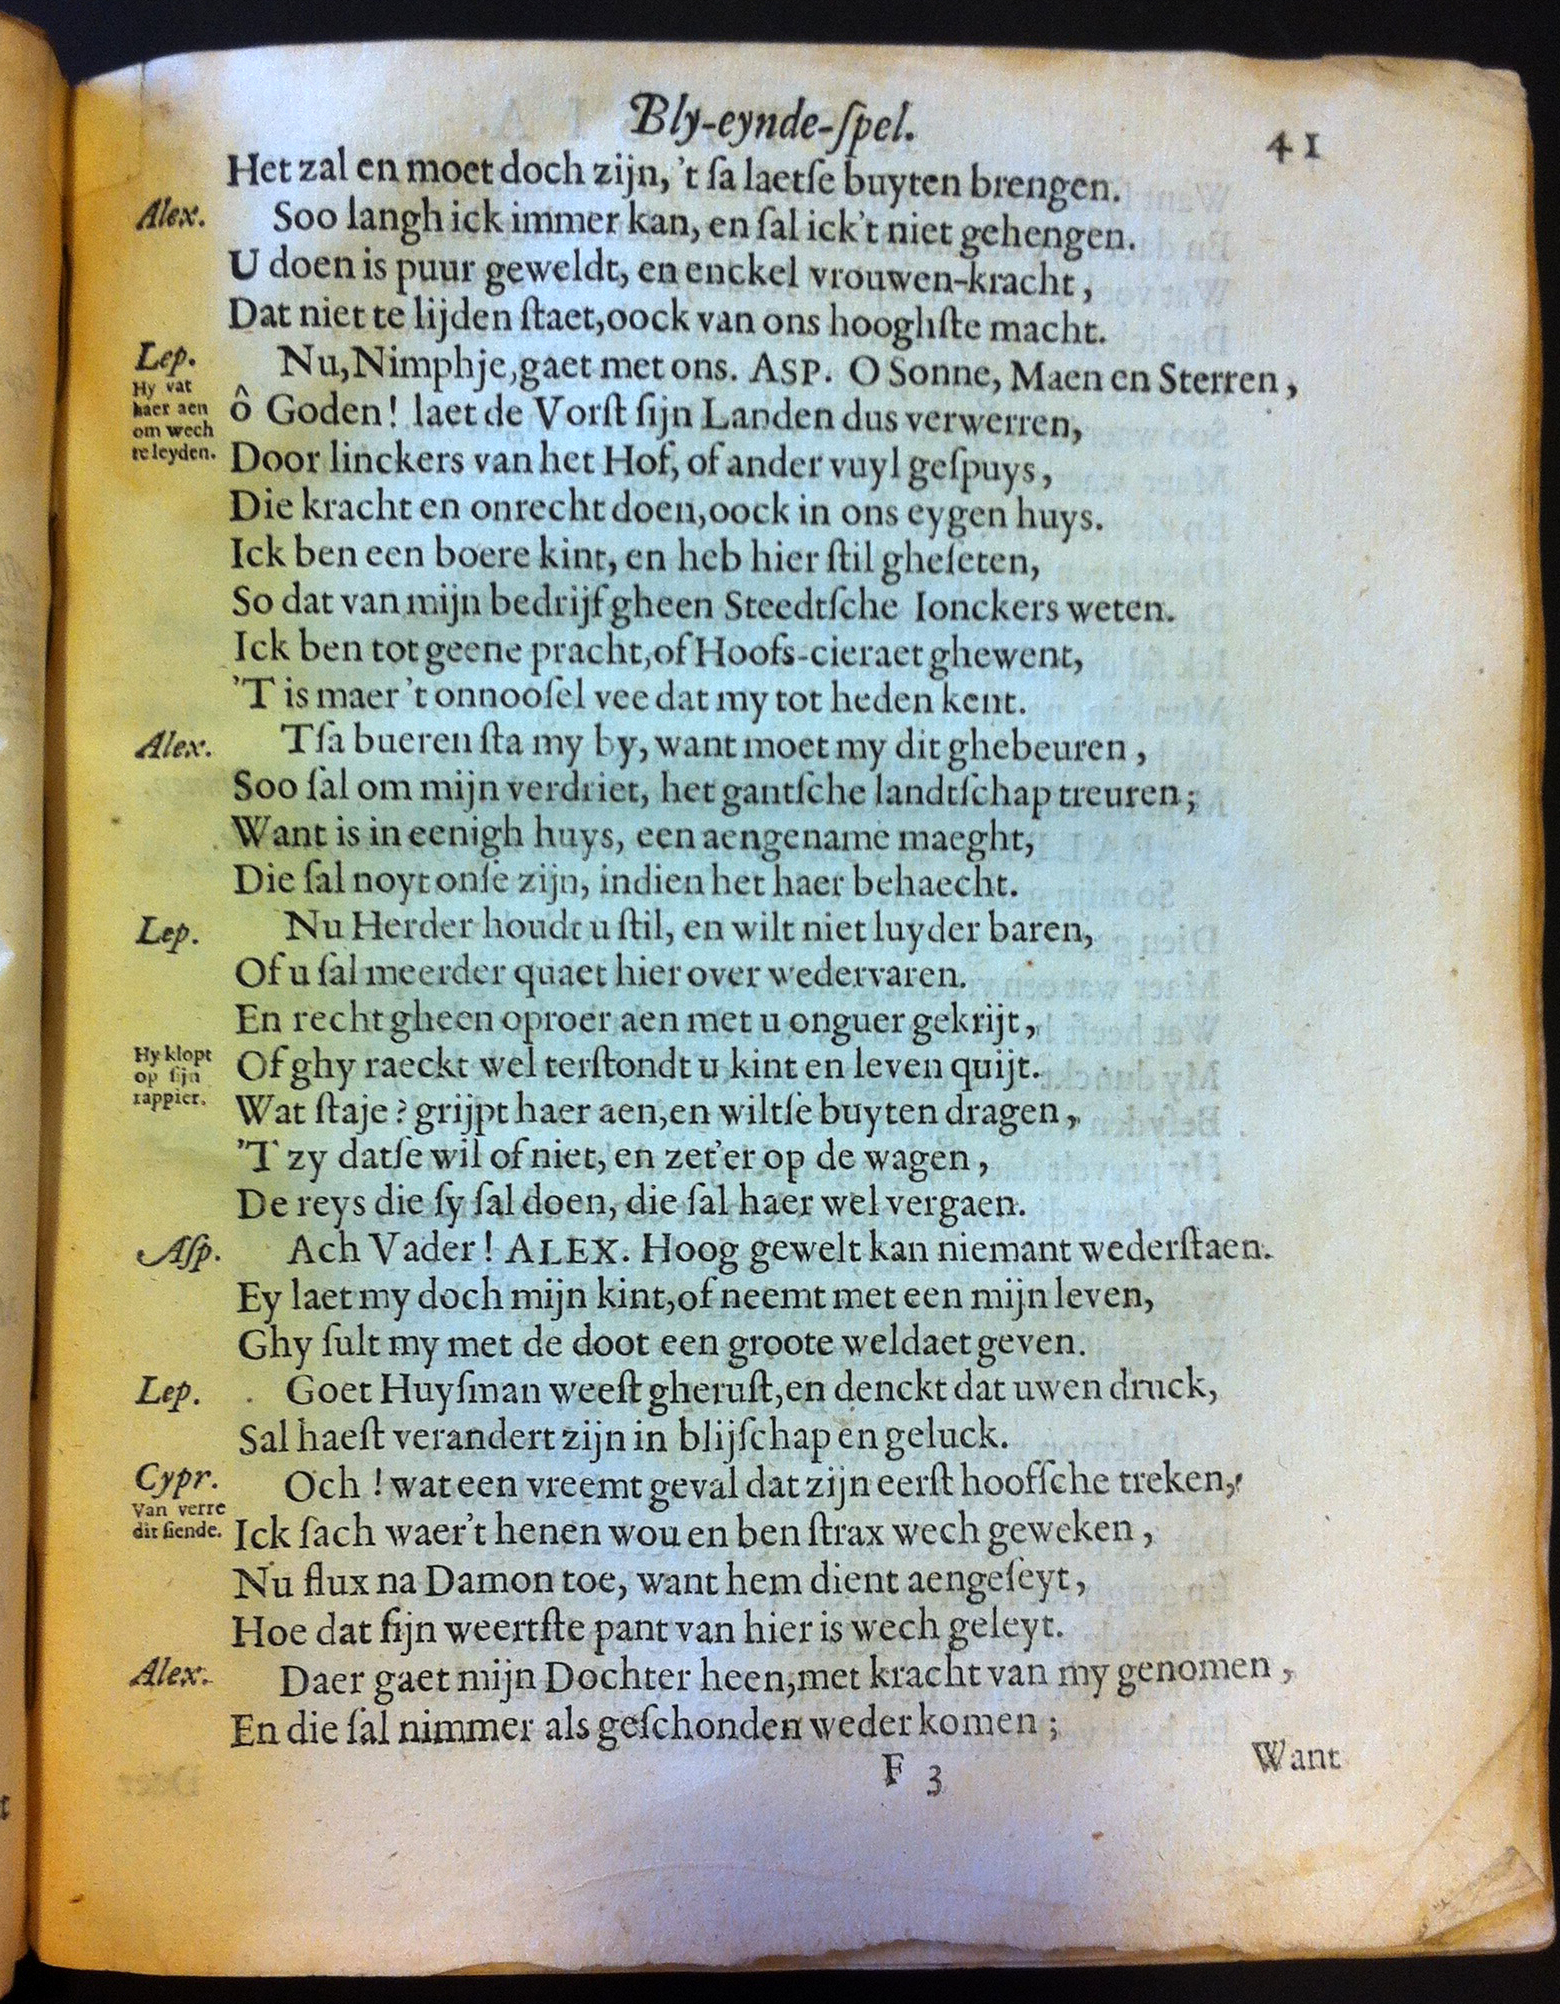 Bly-eynde-ſpel.
41
Het zal en moet doch zijn, 't ſa laetſe buyten brengen.
Alex. Soo langh ick immer kan, en ſal ick't niet gehengen.
U doen is puur geweldt, en enckel vrouwen-kracht,
Dat niet te lijden ſtaet, oock van ons hooghſte macht.
Lep. Nu, Nimphje, gaet met ons. ASP. O Sonne, Maen en Sterren,
Hy vat
haer aen
om wech
te leyden.
ô Goden! laet de Vorſt ſijn Landen dus verwerren,
Door linckers van het Hof, of ander vuyl geſpuys,
Die kracht en onrecht doen, oock in ons eygen huys.
Ick ben een boere kint, en heb hier ſtil gheſeten,
So dat van mijn bedrijf gheen Steedtſche Ionckers weten.
Ick ben tot geene pracht, of Hoofs-cieraet ghewent,
'T is maer 't onnooſel vee dat my tot heden kent.
Alex. Tſa bueren ſta my by, want moet my dit ghebeuren,
Soo ſal om mijn verdriet, het gantſche landtſchap treuren;
Want is in eenigh huys, een aengename maeght,
Die ſal noyt onſe zijn, indien het haer behaecht.
Lep. Nu Herder houdt u ſtil, en wilt niet luyder baren,
Of u ſal meerder quaet hier over wedervaren.
En recht gheen oproer aen met u onguer gekrijt,
Hy klopt
op ſijn
rappier.
Of ghy raeckt wel terſtondt u kint en leven quijt.
Wat ſtaje? grijpt haer aen, en wiltſe buyten dragen,
'T zy datſe wil of niet, en zet'er op de wagen,
De reys die ſy ſal doen, die ſal haer wel vergaen.
Aſp. Ach Vader! ALEX. Hoog gewelt kan niemant wederſtaen.
Ey laet my doch mijn kint, of neemt met een mijn leven,
Ghy ſult my met de doot een groote weldaet geven.
Lep. Goet Huyſman weeſt gheruſt, en denckt dat uwen druck,
Sal haeſt verandert zijn in blijſchap en geluck.
Cypr. Och! wat een vreemt geval dat zijn eerſt hoofſche treken,
Van verre
dit ſiende.
Ick ſach waer't henen wou en ben ſtrax wech geweken,
Nu flux na Damon toe, want hem dient aengeſeyt,
Hoe dat ſijn weertſte pant van hier is wech geleyt.
Alex. Daer gaet mijn Dochter heen, met kracht van my genomen,
En die ſal nimmer als geſchonden weder komen;
F 3
Want